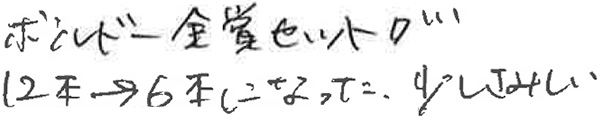 ボルドー金賞セットが
12本→6本になった。少しさみしい